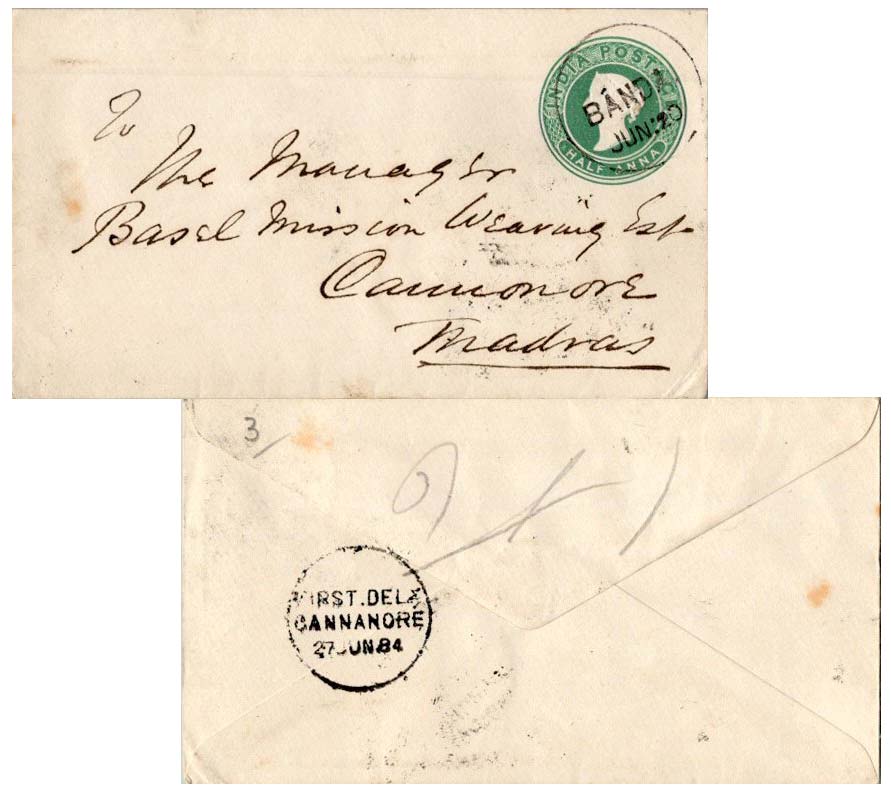 INDIA POSTAGE
HALF ANNA
BANDA
JUN:20
To
The Manager
Basel Mission Weaving Est
Cannonore
Madras
3
FIRST.DELY
CANNANORE
27JUN.84